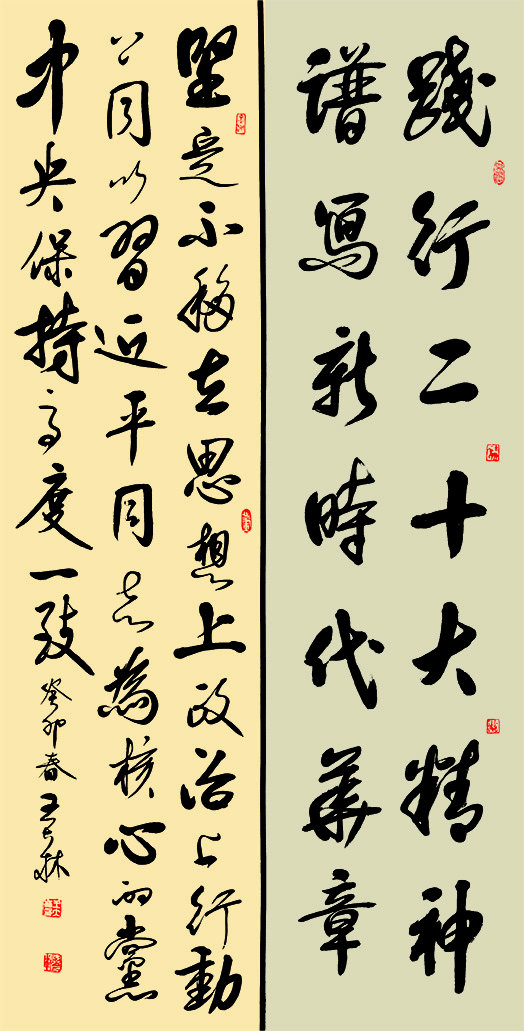 踐行二十大精神
譜寫新時代華章
堅定不移在思想上政治上行動
上同以習近平同志為核心的黨
中央保持高度一致
癸卯春